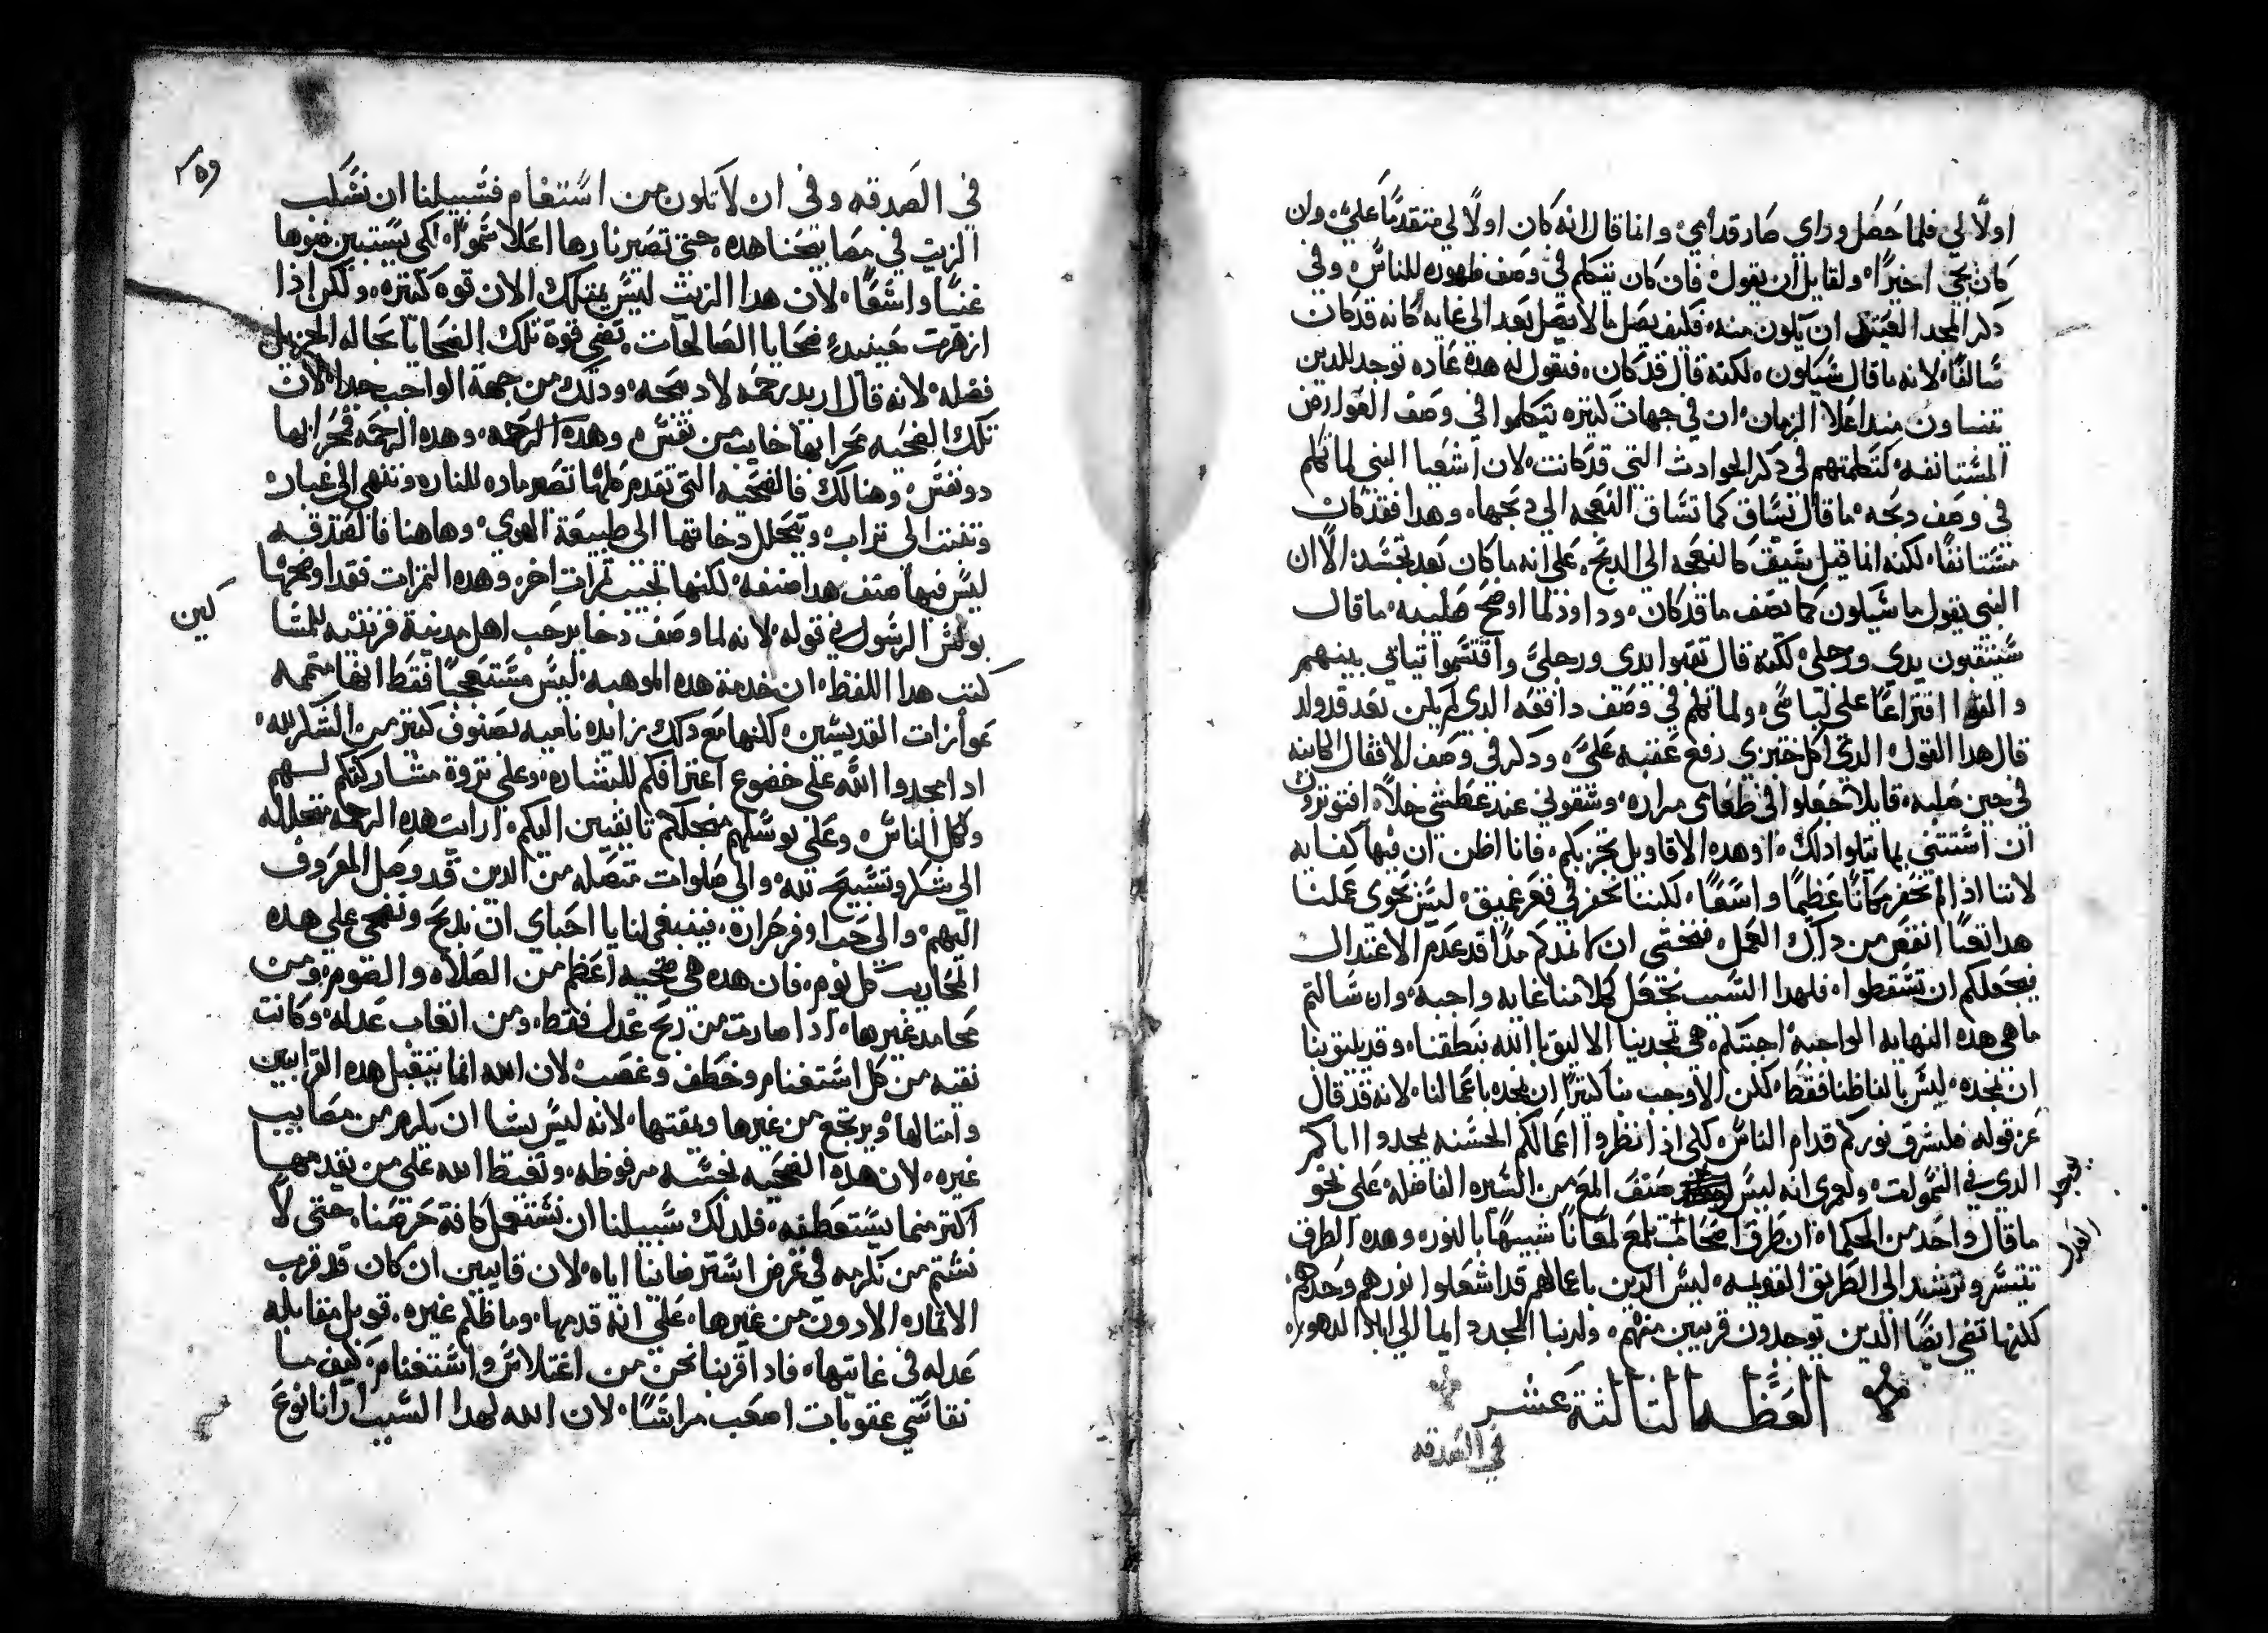 اولًا لي فلما حصل وراي صار قدامي وانما قال انه كان اولًا لي متقدمًا عليَّ وان
كان يجي اخيرًا ولقايل ان يقول فان كان يتكلم في وصف ظهوره للناس وفي
دكر المجد العتيد ان يكون منه فكيف يصل ما لا يصل بعد الى غايه كانه قد كان
سالفًا لانه ما قال سيكون لكنه قال قد كان فنقول له هده عاده توجد للدين
يتنباون منداعلا الزمان ان في جهات كتيره يتكلموا في وصف العوارض
المستانفه كتكلمتهم في دكر الحوادث التي قد كانت لان اشعيا النبي لما تكلم
في وصف دبحه ما قال يساق كما تساق النعجه الي دبحها وهدا فقد كان
مستانفًا لكنه انما قيل سيق كالنعجه الى الدبح على انه ما كان بعد تجسد الا ان
النبي يقول ما سيكون كما يصف ما قد كان وداوود لما اوضح صليبه ما قال
سيثقبون يدي ورجلي لكنه قال ثقبوا يدي ورجليَّ واقتسموا تيابي بينهم
والقوا اقتراعًا على لباسي ولما تكلم في وصف دافعه الدي لم يكن بعد قد ولد
قال هدا القول الدي اكل خبزي رفع عقبه عليَّ ودكر في وصف الافعال الكاينه
في حين صلبه قايلا جعلوا في طعامي مراره وسقوني عند عطشي خلًا افتوترون
ان استتني بما يتلوا دلك او هده الاقاويل تجزيكم فانا اظن ان فيها كفايه
لاننا اذا لم نحفر مكانًا عظيمًا واسعًا لكننا نحفر في قعر عميق ليس يحوي عملنا
هدا تعبًا انقص من داك العمل فنخشي ان كلامدكم مدًا قد عدم الاعتدال
فيجعلكم ان تسقطوا فلهدا السبب نجعل كلامنا غايه واجبه وان سالتم
ما هي هده النهايه الواجبه اجبتكم هي تمجدينا الاليق بالله بنطقنا وقد يليق بنا
ان نمجده ليس بالفاظنا فقط لكن الاوجب بنا كتيرًا ان نمجده باعمالنا لانه قد قال
عز قوله فليشرق نوركم قدام الناس لكي اذا نظروا اعمالكم الحسنه يمجدوا اباكم
الدي في السموات ولعمري انه ليس يوجد صنف المع من السيره الفاضله على نحو
ما قال واحد من الحكما ان طرق اصحاب العدل تلمع لمعانًا شبيهًا بالنور وهده الطرق
تتيسر وترشد الى الطريق القويمه ليس الدين باعمالهم قد اشعلوا نورهم وحدهم
لكنها تضي ايضًا الدين توجدون قريبين منهم ولربنا المجد دايما الي اباد الدهور
العظه التالتة عشر
في الصدقه
٢٥٩
في الصدقه وفي ان لا تكون من استغنام فسبيلنا ان نسكب
الزيت في مصابيحنا هده حتى تصير نارها اعلا سموًا لكي يستبين ضوها
غنيًا واسعًا لان هدا الزيت ليس يمتلك الان قوه كتيره ولكن اذا
ازهرت حينيدٍ ضحايا الصالحات تضي قوة تلك الضحايا بجاله الجزيل
فضله لانه قال اريد رحمه لا دبيحه ودلك من جهة الواجب جدا لان
تلك الضحيه محرابها خايب من نفس وهده الرحمه وهده الرحمه فمحرابها
دو نفس وهنالك فالضحيه التي تقدم كلها تصير ماده للنار وتنتهي الى غبار
وتفتت الى تراب ويتحلل دخانها الى طبيعة الهوي وهاهنا فالصدقه
ليس فيها صنف هدا صنفه لكنها تجيب تمرات اخر وهده التمرات فقد اوضحها
بولس الرسول في قوله لانه لما وصف دخاير حب اهل مدينة قرنتيه للمسا لين
كتب هدا اللفظ ان خدمة هده الموهبه ليس مستعجبًا فقط انها متممه
عوازات القديسين لكنها مع دلك زايده ناميه بصنوف كتيره من الشكر لله
اد امجدوا الله على خضوع اعترافكم للبشاره وعلى تروة مشاركتكم لهم
ولكل الناس وعلى توسلهم من اجلكم تايقين اليكم ارايت هده الرحمه متحلله
الى شكر وتسبيح لله والي صلوات متصله من الدين قد وصل المعروف
اليهم والي حب اوفر حراره فينبغي لنا يا احباي ان ندبح ونضحي على هده
المحاريب كل يوم فان هده هي ضحيه اعظم من الصلاه والصوم ومن
محامد غيرها اذا صارت من ربح عدل فقط ومن اتعاب عدله وكانت
نقيه من كل استغنام وخطف وغصب لان الله انما يتقبل هده القرابين
وامتالها ويرتجع من غيرها ويمقتها لانه ليس يشا ان يكرم من مصايب
غيره لان هده الضحيه نجسه مرفوضه وتغيظ الله على من يقدمها
اكتر مما يستعطفه فلدلك سبيلنا ان نستعمل كافة حرصنا حتى لا
نشتم من نكرمه في غرض استرضانا اياه لان قايين ان كان قد قرب
الاتماره الادون من غيرها على انه قدمها وما ظلم غيره قوبل مقابله
عدله في غايتها فادا قربنا نحن من اختلاس واستغنام كيف ما
نقاسي عقوبات اصعب مراسًا لان الله لهدا السبب ارانا نوع